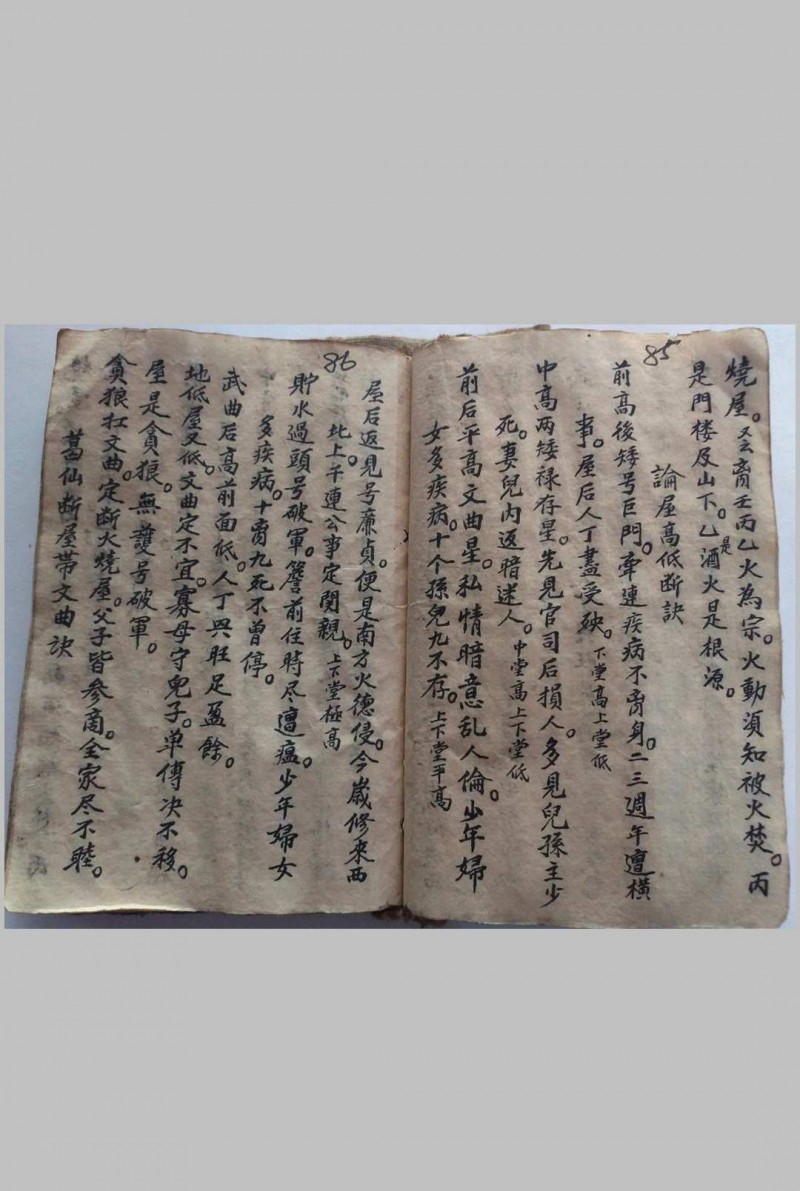 85
燒屋。又云离壬丙乙火為宗。火動須知被火焚。丙
是門楼及山下。乙是酒火是根源。
論屋高低断訣
前高後矮号巨門。牽連疾病不离身。二三週年遭横
事。屋后人丁盡受殃。下堂高上堂低
中高两矮禄存星。先見官司后損人。多見兒孫主少
死。妻兒内返暗迷人。中堂高上下堂低
前后平高文曲星。私情暗意乱人倫。少年婦
女多疾病。十个孫兒九不存。上下堂平高
86
屋后返見号廉貞。便是南方火德侵。今嵗修来西
北上。干連公事定関親。上下堂極高
貯水過頭号破軍。簷前住時尽遭瘟。少年婦女
多疾病。十离九死不曾停。
武曲后高前面低。人丁興旺足盈餘。
地低屋又低。文曲定不宜。寡母守兒子。单傳决不移。
屋是貪狼。無護号破軍。
貪狼扛文曲。定断火燒屋。父子皆参商。全家尽不睦。
葛仙断屋帶文曲訣